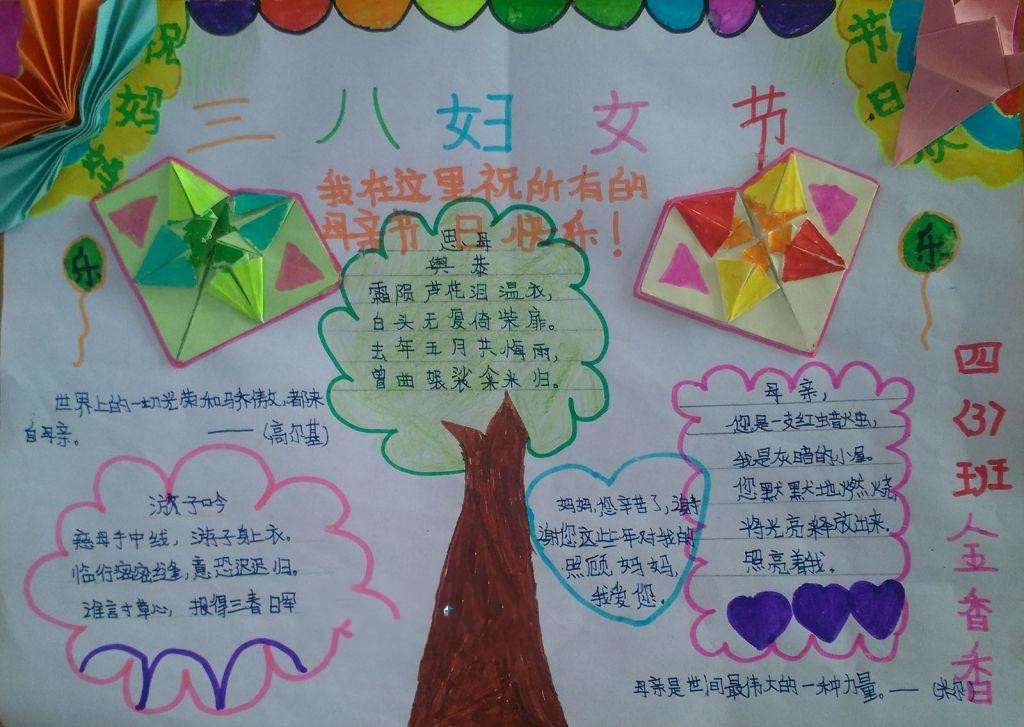 祝
妈
节
日
三八妇女节
我在这里祝所有的
母亲节日快乐！
乐
乐
思母
與恭
霜陨芦花泪湿衣，
白头无复倚柴扉。
去年五月共悔雨，
曾曲袈裟籴米归。
世界上的一切光荣和骄傲，都来
自母亲。
——（高尔基）
游子吟
慈母手中线，游子身上衣。
临行密密缝，意恐迟迟归。
谁言寸草心，报得三春晖
妈妈，您辛苦了，谢
谢您这些年对我的
照顾妈妈，
我爱您。
母亲，
您是一支红蜡烛，
我是灰暗的小屋。
您默默地燃烧，
将光亮释放出来。
照亮着我。
母亲是世间最伟大的一种力量。——（米尔）
四
(3)
班
香
香